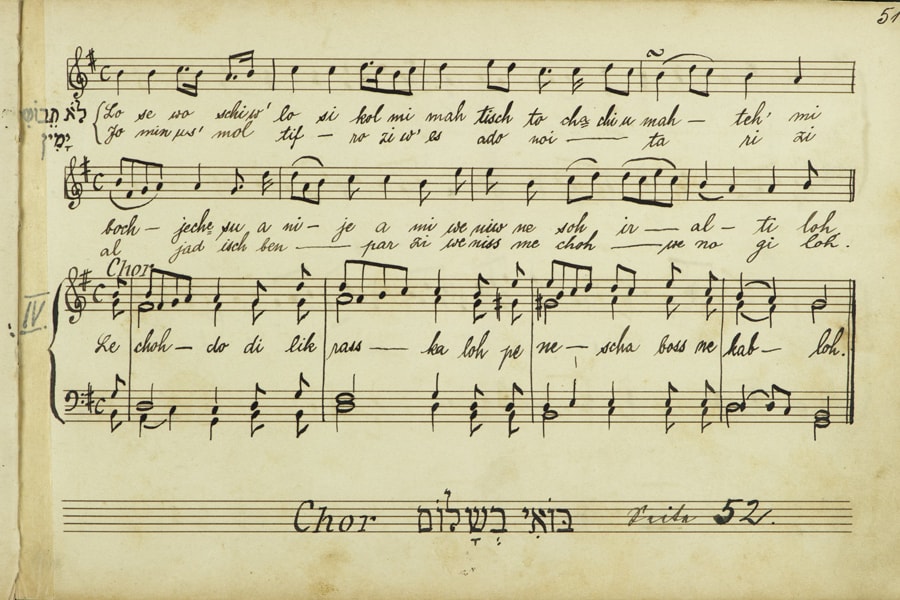 51
לֹא תֵבוֹשִׁי
Lo se wo schiw' lo si kol mi mah tisch to chachi u mah — teh' mi
יָמִין
Jo min us' mol tif — ro zi w' es ado noi — ta ri zi
boch — jeche su a ni — je a mi we niw ne soh ir — al — ti loh
al jad isch ben — par zi we niss me choh — we no gi loh.
Chor
IV
Le choh — do di lik rass — ka loh pe ne — scha boss ne kab — loh.
Chor בּוֹאִי בְשָׁלוֹם Seite 52.